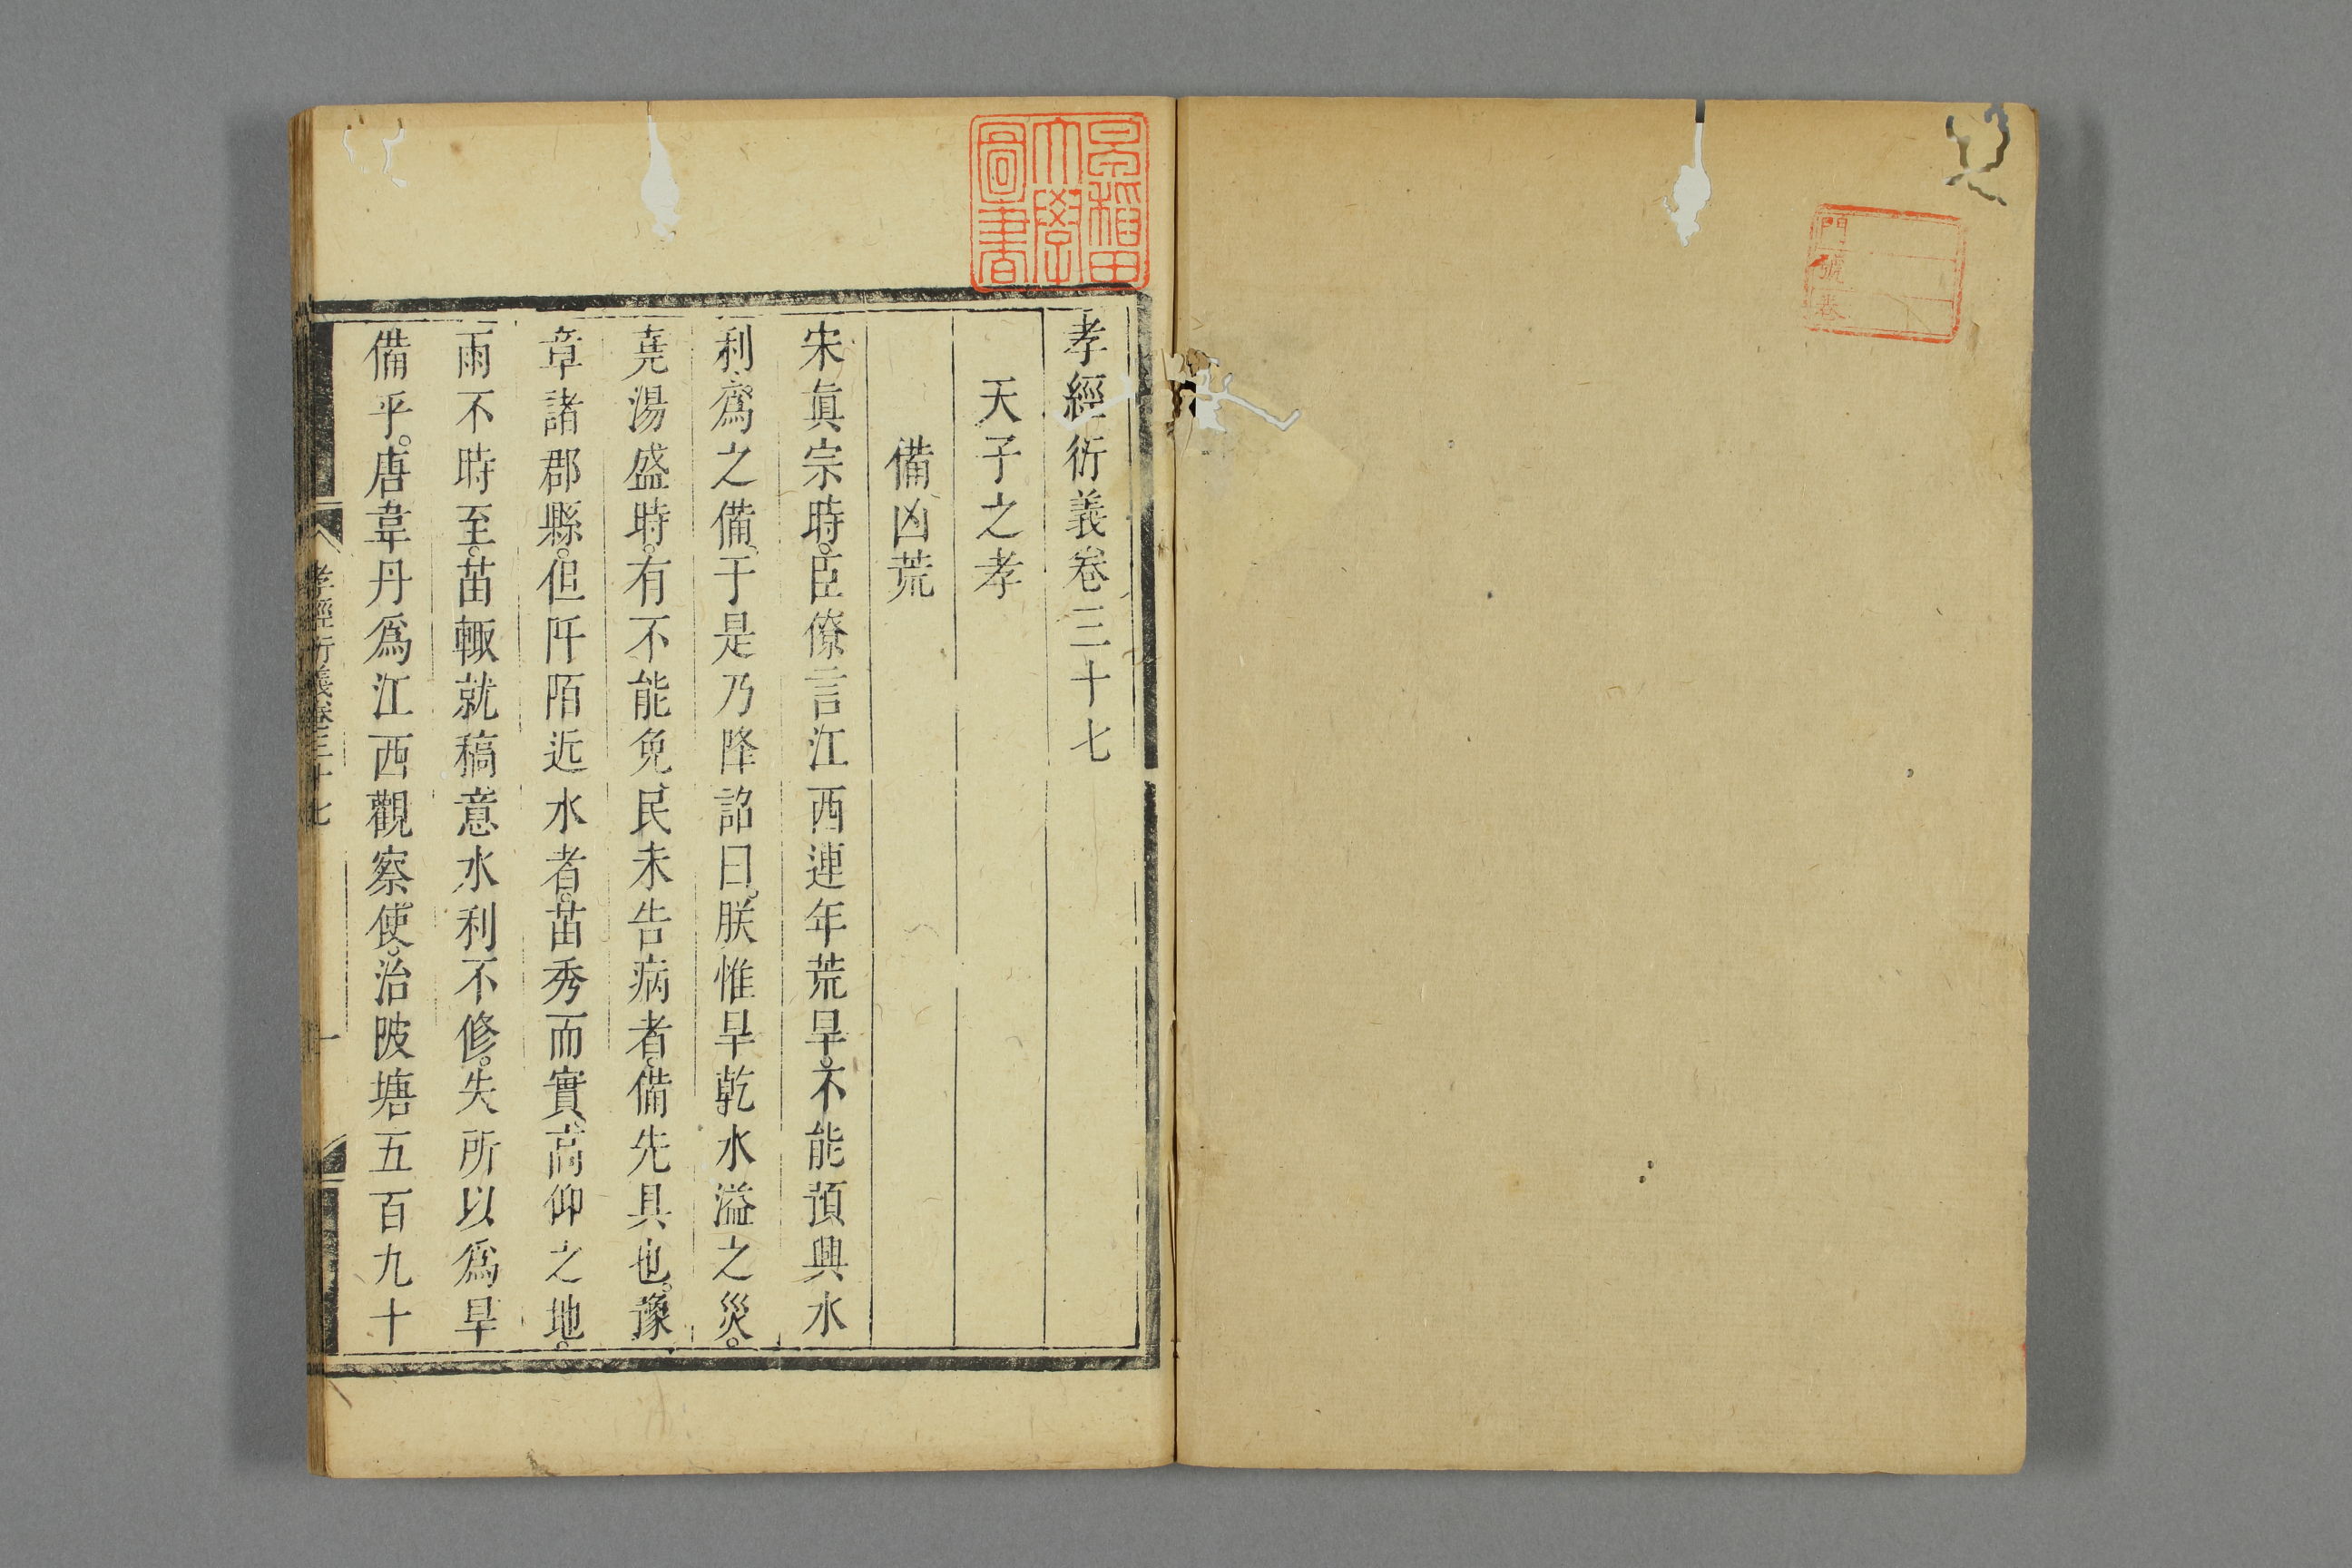 門
號
卷
早稻田
大學
圖書
孝經衍義卷三十七
天子之孝
備凶荒
宋眞宗時。臣僚言江西連年荒旱。不能預興水
利、爲之備。于是乃降詔曰。朕惟旱乾水溢之災。
堯湯盛時。有不能免、民未告病者。備先具也。豫
章諸郡縣。但阡陌近水者。苗秀而實、高仰之地。
雨不時至。苗輙就稿意水利不修。失所以爲旱
備乎。唐韋丹爲江西觀察使。治陂塘五百九十
孝經衍義卷三十七
一